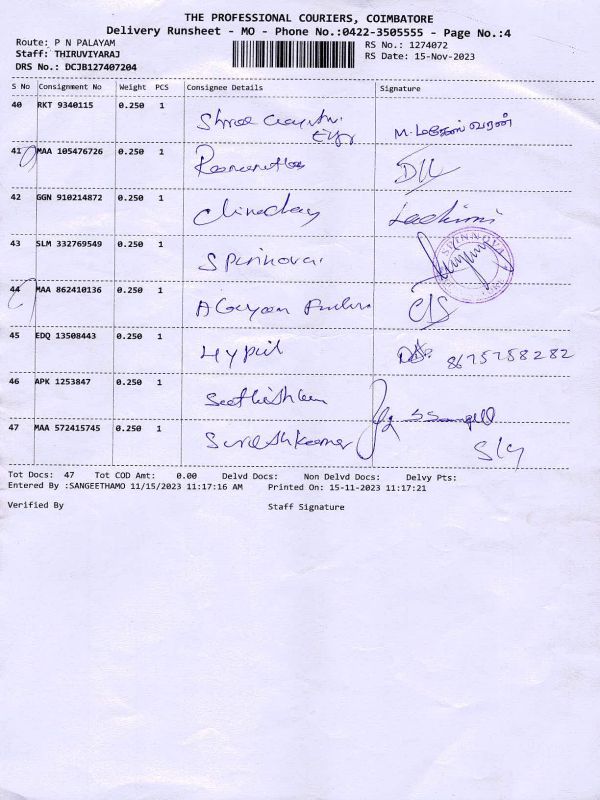 THE PROFESSIONAL COURIERS, COIMBATORE
Delivery Runsheet - MO - Phone No.:0422-3505555 - Page No.:4
Route: P N PALAYAM
Staff: THIRUVIYARAJ
DRS No.: DCJB127407204
RS No.: 1274072
RS Date: 15-Nov-2023
S No Consignment No Weight PCS Consignee Details Signature
40 RKT 9340115 0.250 1 Shree
M. மகேஸ்வரன்
41 MAA 105476726 0.250 1
42 GGN 910214872 0.250 1
43 SLM 332769549 0.250 1 Spinnova
SPINNOVA
44 MAA 862410136 0.250 1
45 EDQ 13508443 0.250 1 8675758282
46 APK 1253847 0.250 1
47 MAA 572415745 0.250 1 Sureshkumar
Tot Docs: 47 Tot COD Amt: 0.00 Delvd Docs: Non Delvd Docs: Delvy Pts:
Entered By :SANGEETHAMO 11/15/2023 11:17:16 AM Printed On: 15-11-2023 11:17:21
Verified By Staff Signature